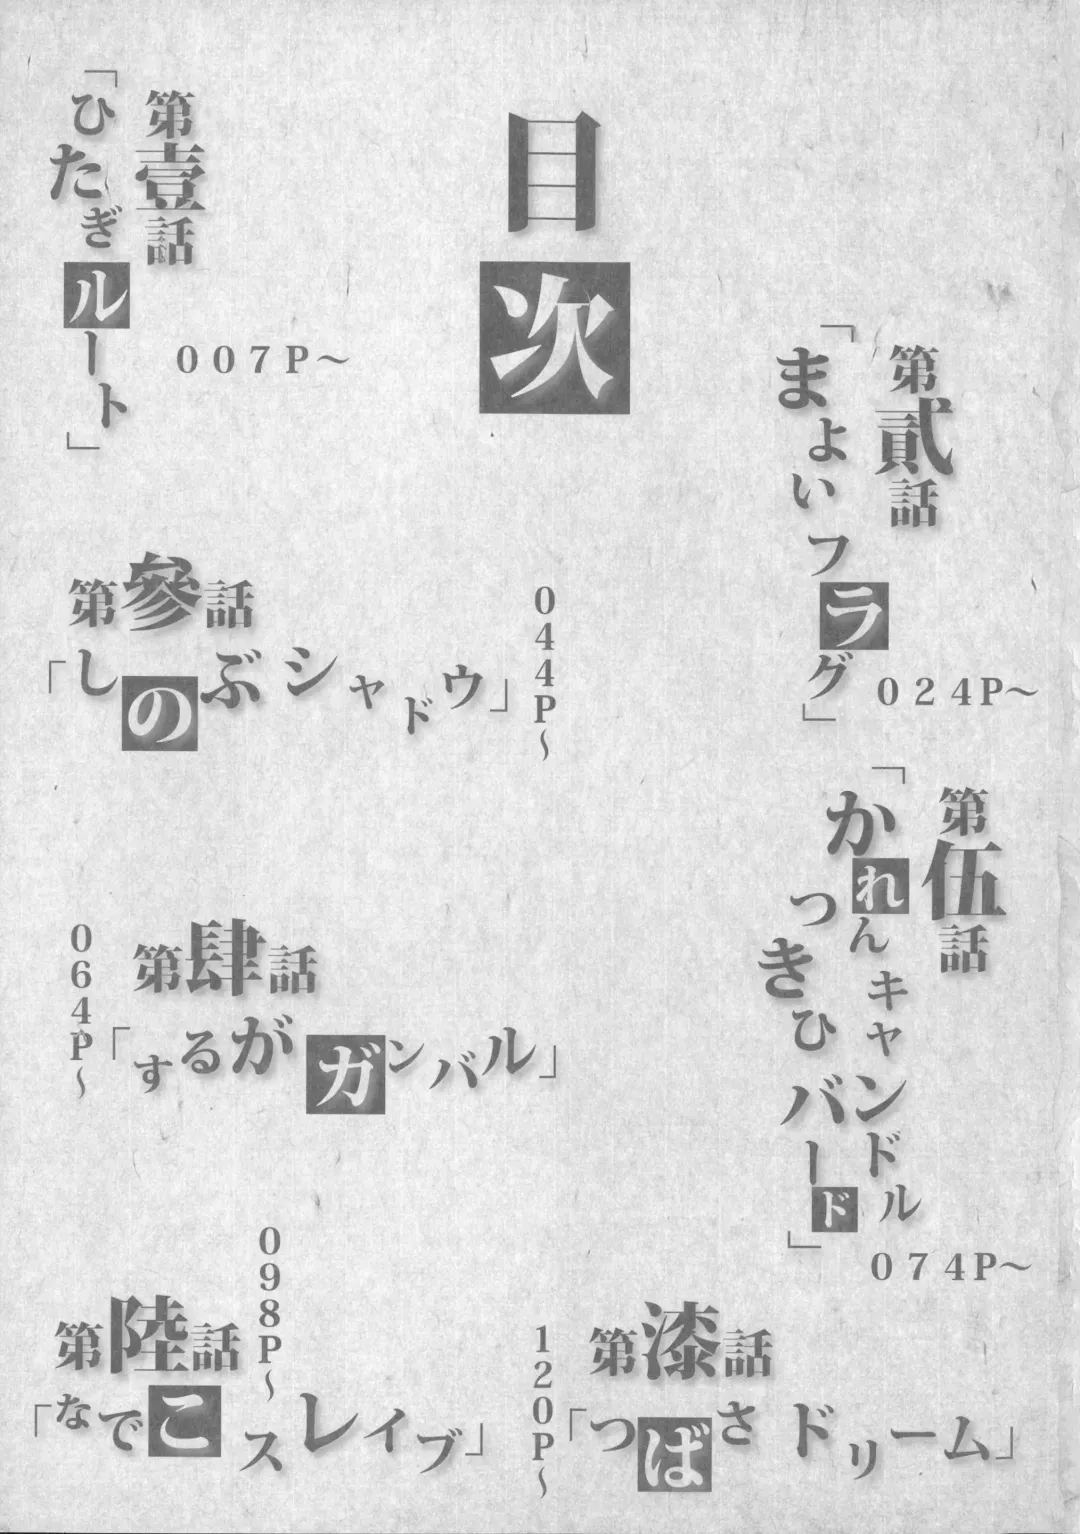 目次
第壹話
「ひたぎルート」
007P～
第貳話
「まよいフラグ」
024P～
第参話
「しのぶシャドウ」
044P～
第肆話
「するがガンバル」
064P～
第伍話
「かれんキャンドル
つきひバード」
074P～
第陸話
「なでこスレイブ」
098P～
第漆話
「つばさドリーム」
120P～